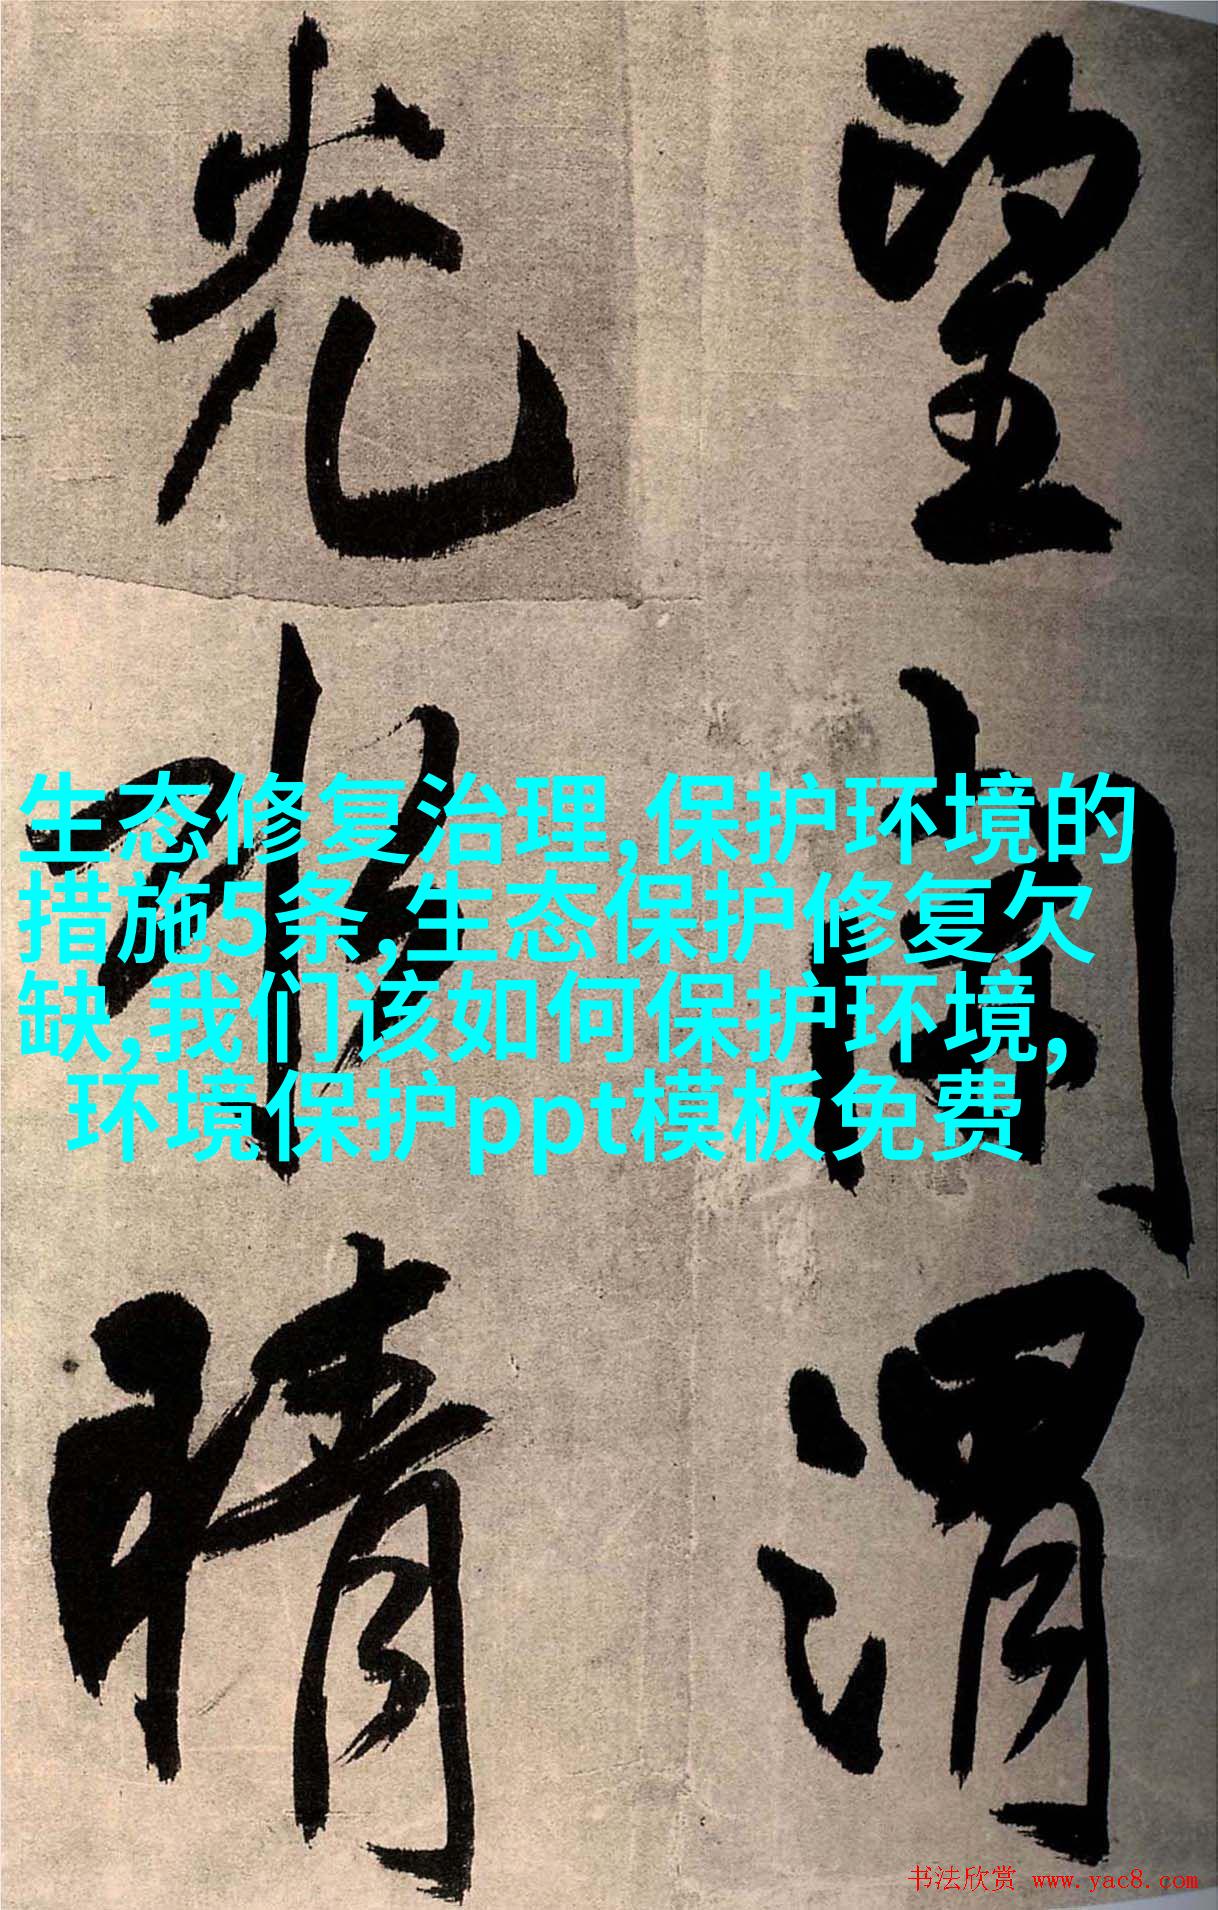 望阑渭
光水晴
生态修复治理,保护环境的
措施5条,生态保护修复欠
缺,我们该如何保护环境,
环境保护ppt模板免费
书法欣赏 www.yac8.com